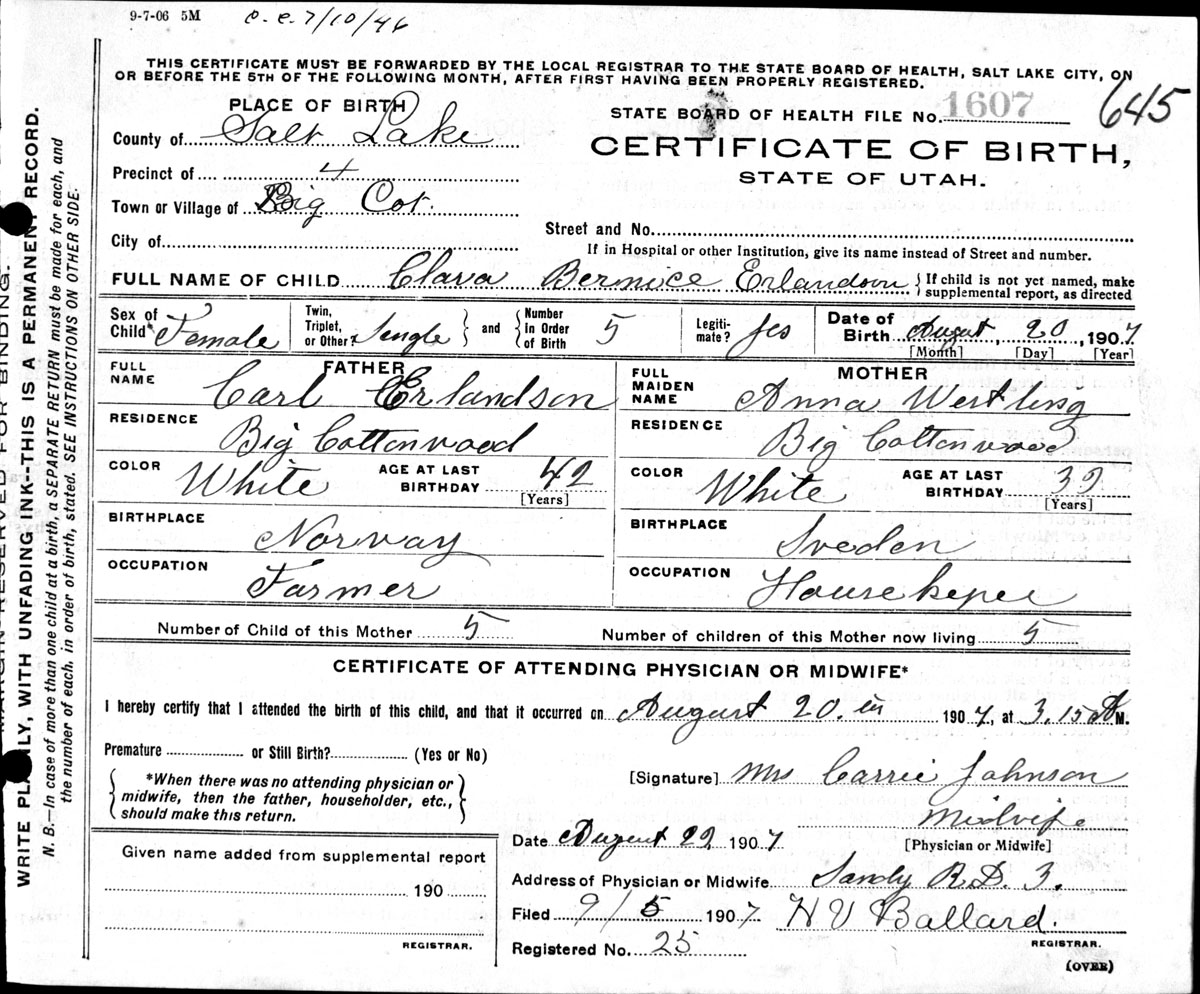 9-7-06 5M
O. C. 7/10/46
THIS CERTIFICATE MUST BE FORWARDED BY THE LOCAL REGISTRAR TO THE STATE BOARD OF HEALTH, SALT LAKE CITY, ON
OR BEFORE THE 5TH OF THE FOLLOWING MONTH, AFTER FIRST HAVING BEEN PROPERLY REGISTERED.
PLACE OF BIRTH
County of Salt Lake
Precinct of 4
Town or Village of Big Cot.
City of
STATE BOARD OF HEALTH FILE No. 1607
645
CERTIFICATE OF BIRTH,
STATE OF UTAH.
Street and No.
If in Hospital or other Institution, give its name instead of Street and number.
FULL NAME OF CHILD Clara Bernice Erlandson { If child is not yet named, make
supplemental report, as directed
Sex of Child* Female
Twin, Triplet, or Other? Single } and { Number In Order of Birth 5
Legiti-mate? yes
Date of Birth August, 20, 1907
[Month] [Day] [Year]
FATHER
FULL NAME Carl Erlandson
RESIDENCE Big Cottonwood
COLOR White AGE AT LAST BIRTHDAY 42
[Years]
BIRTHPLACE Norway
OCCUPATION Farmer
MOTHER
FULL MAIDEN NAME Anna Westling
RESIDENCE Big Cottonwood
COLOR White AGE AT LAST BIRTHDAY 32
[Years]
BIRTHPLACE Sveden
OCCUPATION Housekepee
Number of Child of this Mother 5 Number of children of this Mother now living 5
CERTIFICATE OF ATTENDING PHYSICIAN OR MIDWIFE*
I hereby certify that I attended the birth of this child, and that it occurred on August 20. in 1907, at 3.15 A M.
Premature or Still Birth? (Yes or No)
{ *When there was no attending physician or
midwife, then the father, householder, etc.,
should make this return. }
[Signature] Mrs Carrie Johnson
Midvife
[Physician or Midwife]
Date August 22 1907
Address of Physician or Midwife Sandy R.D. 3.
Filed 9/5 1907 H V Ballard.
REGISTRAR.
Registered No. 25
(OVER)
Given name added from supplemental report
190
REGISTRAR.
MARGIN RESERVED FOR BINDING.
WRITE PLAINLY, WITH UNFADING INK--THIS IS A PERMANENT RECORD.
N. B.—In case of more than one child at a birth, a SEPARATE RETURN must be made for each, and
the number of each, in order of birth, stated. SEE INSTRUCTIONS ON OTHER SIDE.